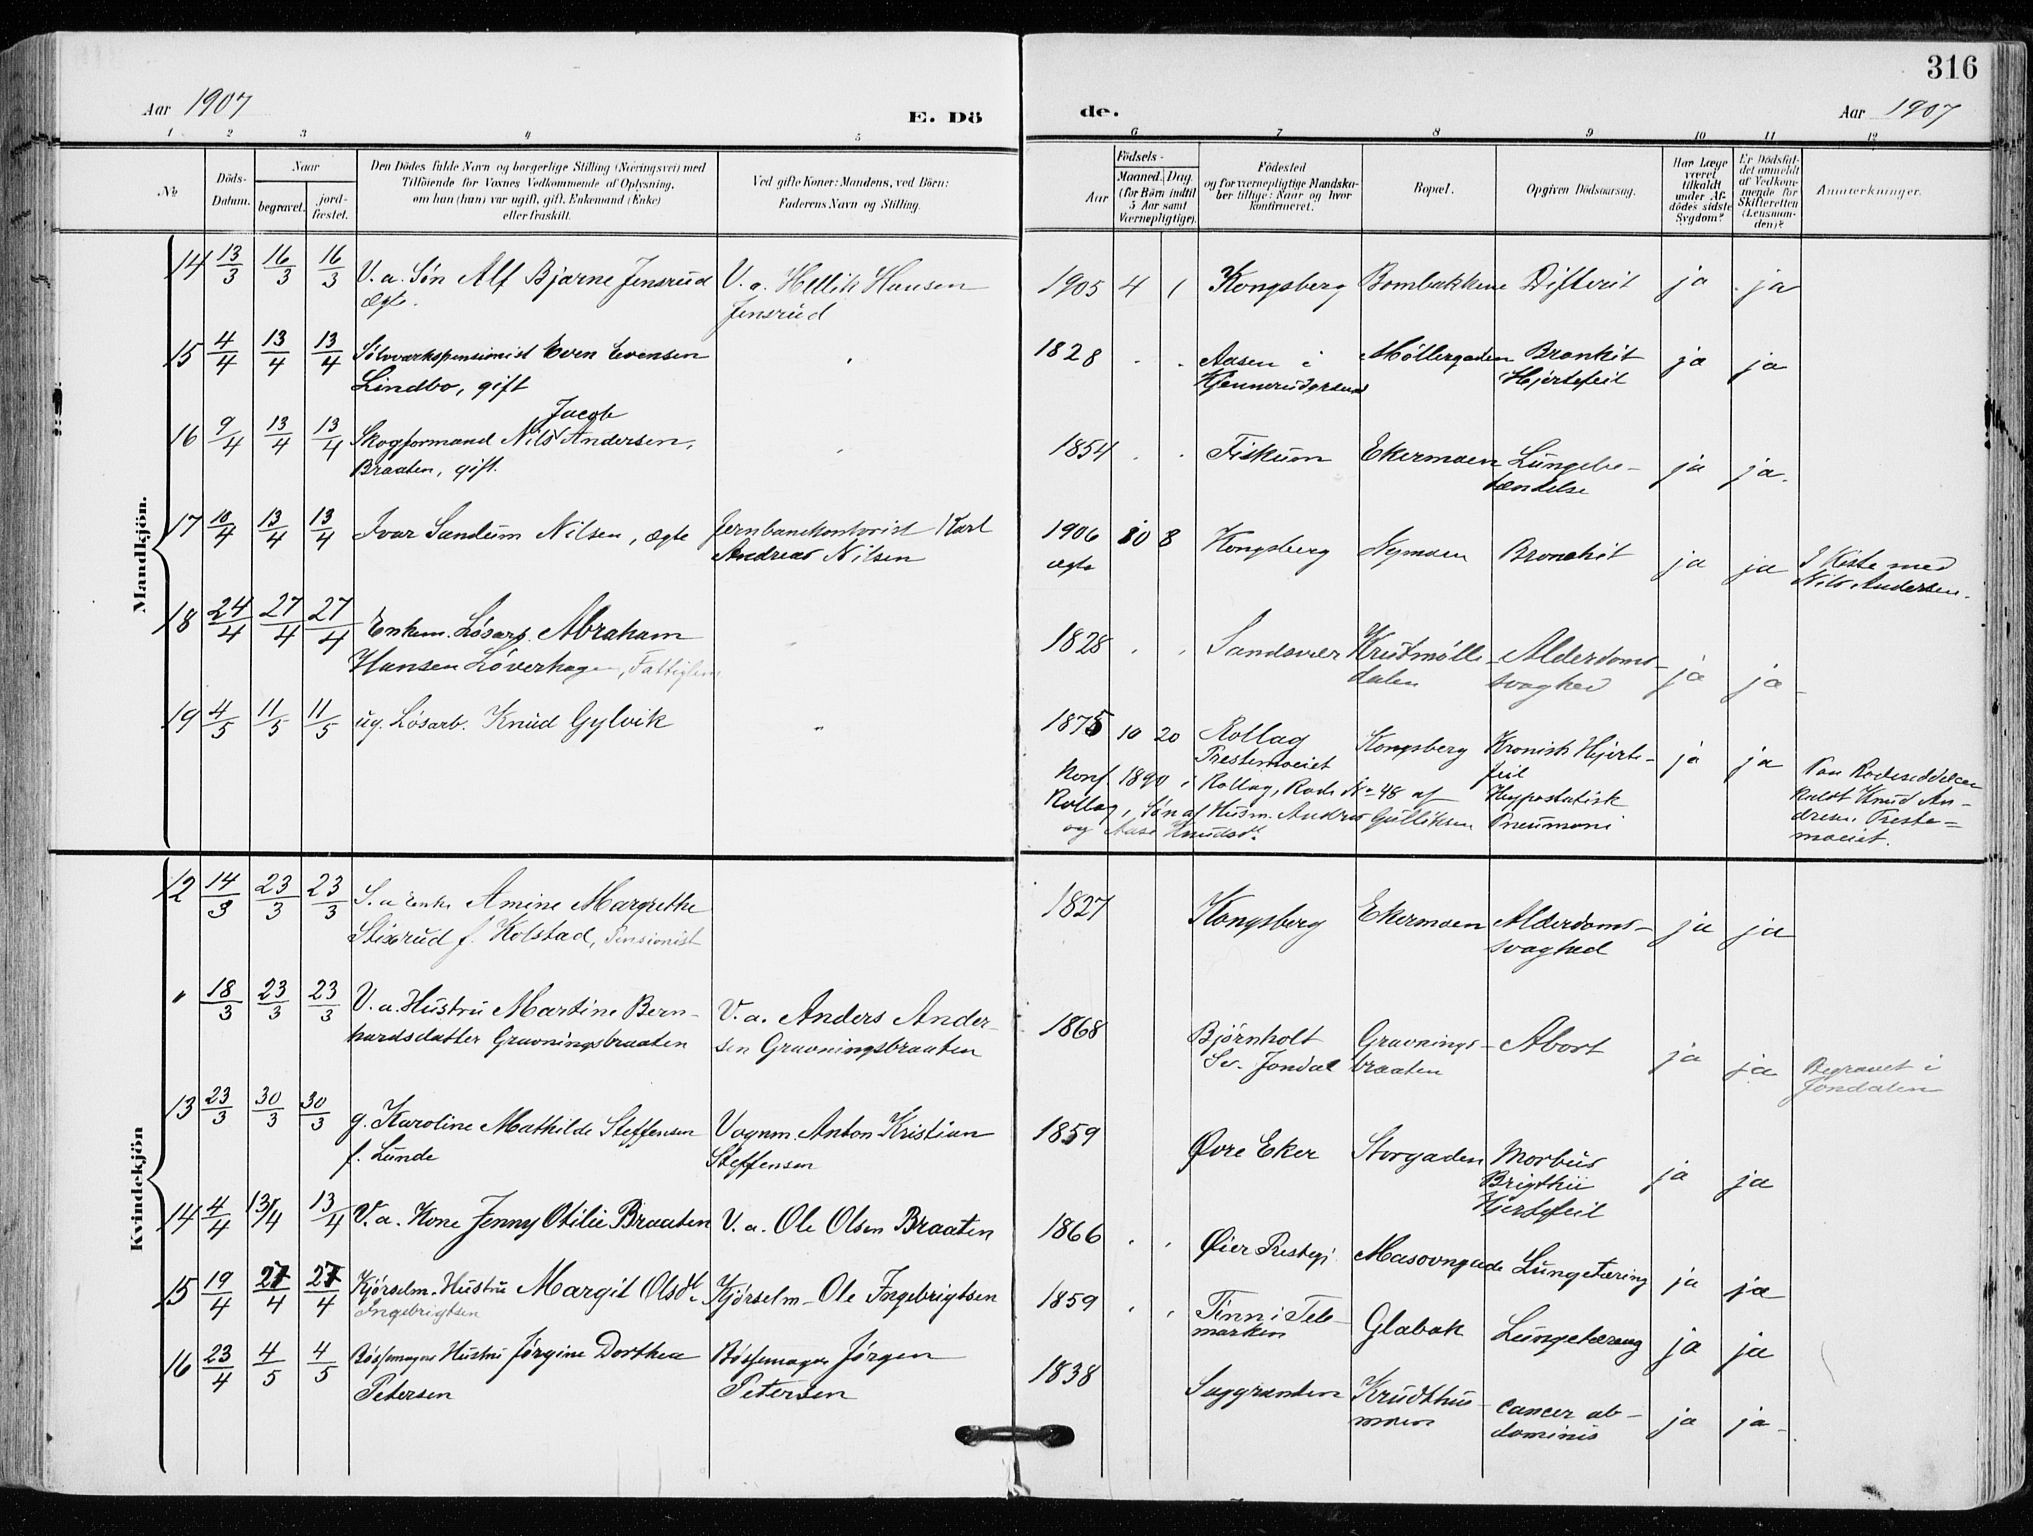 316
Aar 1907
E. Dö
de.
Aar 1907
1 2 3 4 5 6 7 8 9 10 11 12
No
Döds-
Datum.
Naar
begravet.
jord-
fæstet.
Den Dödes fulde Navn og borgerlige Stilling (Næringsvei) med
Tilföiende for Voxnes Vedkommende af Oplysning,
om hun (han) var ugift, gift, Enkemand (Enke)
eller fraskilt.
Ved gifte Koner: Mandens, ved Börn:
Faderens Navn og Stilling.
Födsels-
Aar
Maaned. Dag.
(for Börn indtil
5 Aar samt
Værnepligtige).
Födested
og for værnepligtige Mandska-
ber tillige: Naar og hvor
konfirmeret.
Bopæl.
Opgiven Dödsaarsag.
Har Læge
været
tilkaldt
under Af-
dödes sidste
Sygdom?
Er Dödsfal-
det anmeldt
af Vedkom-
mende for
Skifteretten
(Lensman-
den)?
Anmerkninger.
Mandkjön.
14 13/3 16/3 16/3 V. a. Søn Alf Bjarne Jensrud V. a. Hellik Hansen 1905 4 1 Kongsberg Bombakkene Difterit ja ja
ægte. Jensrud
15 4/4 13/4 13/4 Sølvværkspensionist Even Evensen 1828 Aasen i Møllergaden Bronkit ja ja
Lindbo, gift Hjertefeil
Jacob
16 9/4 13/4 13/4 Skogformand Nils Andersen, 1854 Fiskum Ekermoen Lungebe- ja ja.
Braaten, gift. tændelse
17 10/4 13/4 13/4 Ivar Sandum Nilsen, ægte Jernbanekontorist Karl 1906 10 8 Kongsberg Nymoen Bronchit ja ja I Kiste med
Andreas Nilsen ægte Nils Andersen.
18 24/4 27/4 27/4 Enkem. Løsarb. Abraham 1828 Sandsvær Krudtmølle- Alderdoms- ja ja
Hansen Løverhagen, Fattiglem dalen svaghed
19 4/5 11/5 11/5 ug. Løsarb. Knud Gylvik 1875 10 20 Rollag Kongsberg Kronisk Hjerte- ja ja
Prestemoeiet feil Paa Rodeseddelen
Konf. 1890 i Rollag, Rode No 48 af Hypostatisk kaldt Knud An-
Rollag, Søn af Husm. Andres Gulliksen Pneumoni dresen Preste-
og Aase Knudsdr. moeiet.
Kvindekjön
12 14/3 23/3 23/3 S. a Enke Amine Margrethe 1827 Kongsberg Ekermoen Alderdoms- ja ja
Stixrud f. Kolstad, Pensionist svaghed
" 18/3 23/3 23/3 V. a. Hustru Martine Bern- V. a. Anders Ander- 1868 Bjørnholt Gravnings- Abort ja ja Begravet i
hardsdatter Gravningsbraaten sen Gravningsbraaten Sv. Jondal braaten Jondalen
13 23/3 30/3 30/3 g. Karoline Mathilde Steffensen Vognm. Anton Kristian 1859 Øvre Eker Storgaden Morbus ja ja
f. Lunde Steffensen Brigthii
Hjertefeil
14 4/4 13/4 13/4 V. a. Kone Jenny Otilie Braaten V. a. Ole Olsen Braaten 1866 Øier Prestegj. Masovngade Lungetæring ja ja
15 19/4 27/4 27/4 Kjørselm. Hustru Margit Olsdr. Kjørselm. Ole Ingebrigtsen 1859 Tinn i Tele- Glabak Lungetæring ja ja
Ingebrigtsen marken
16 23/4 4/5 4/5 Bøssemagers Hustru Jørgine Dorthea Bøssemager Jørgen 1838 Saggrenden Krudthus- Cancer ab- ja ja
Petersen Petersen moen dominis